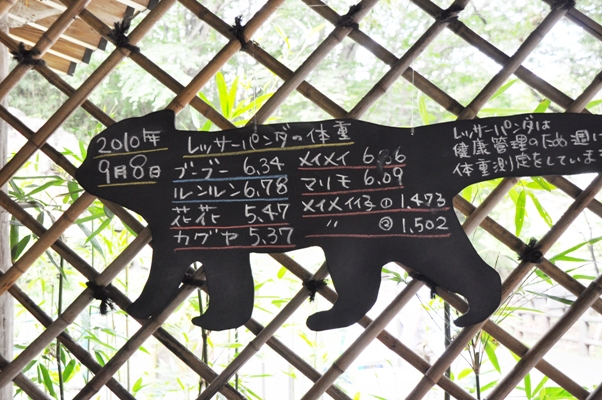 2010年
9月8日
レッサーパンダの体重
ブーブー 6.34
ルンルン 6.78
花花 5,47
カグヤ 5,37
メイメイ 6.36
マリモ 6.09
メイメイ仔① 1,473
〃 ② 1,502
レッサーパンダは
健康管理のため週に
体重測定をしています